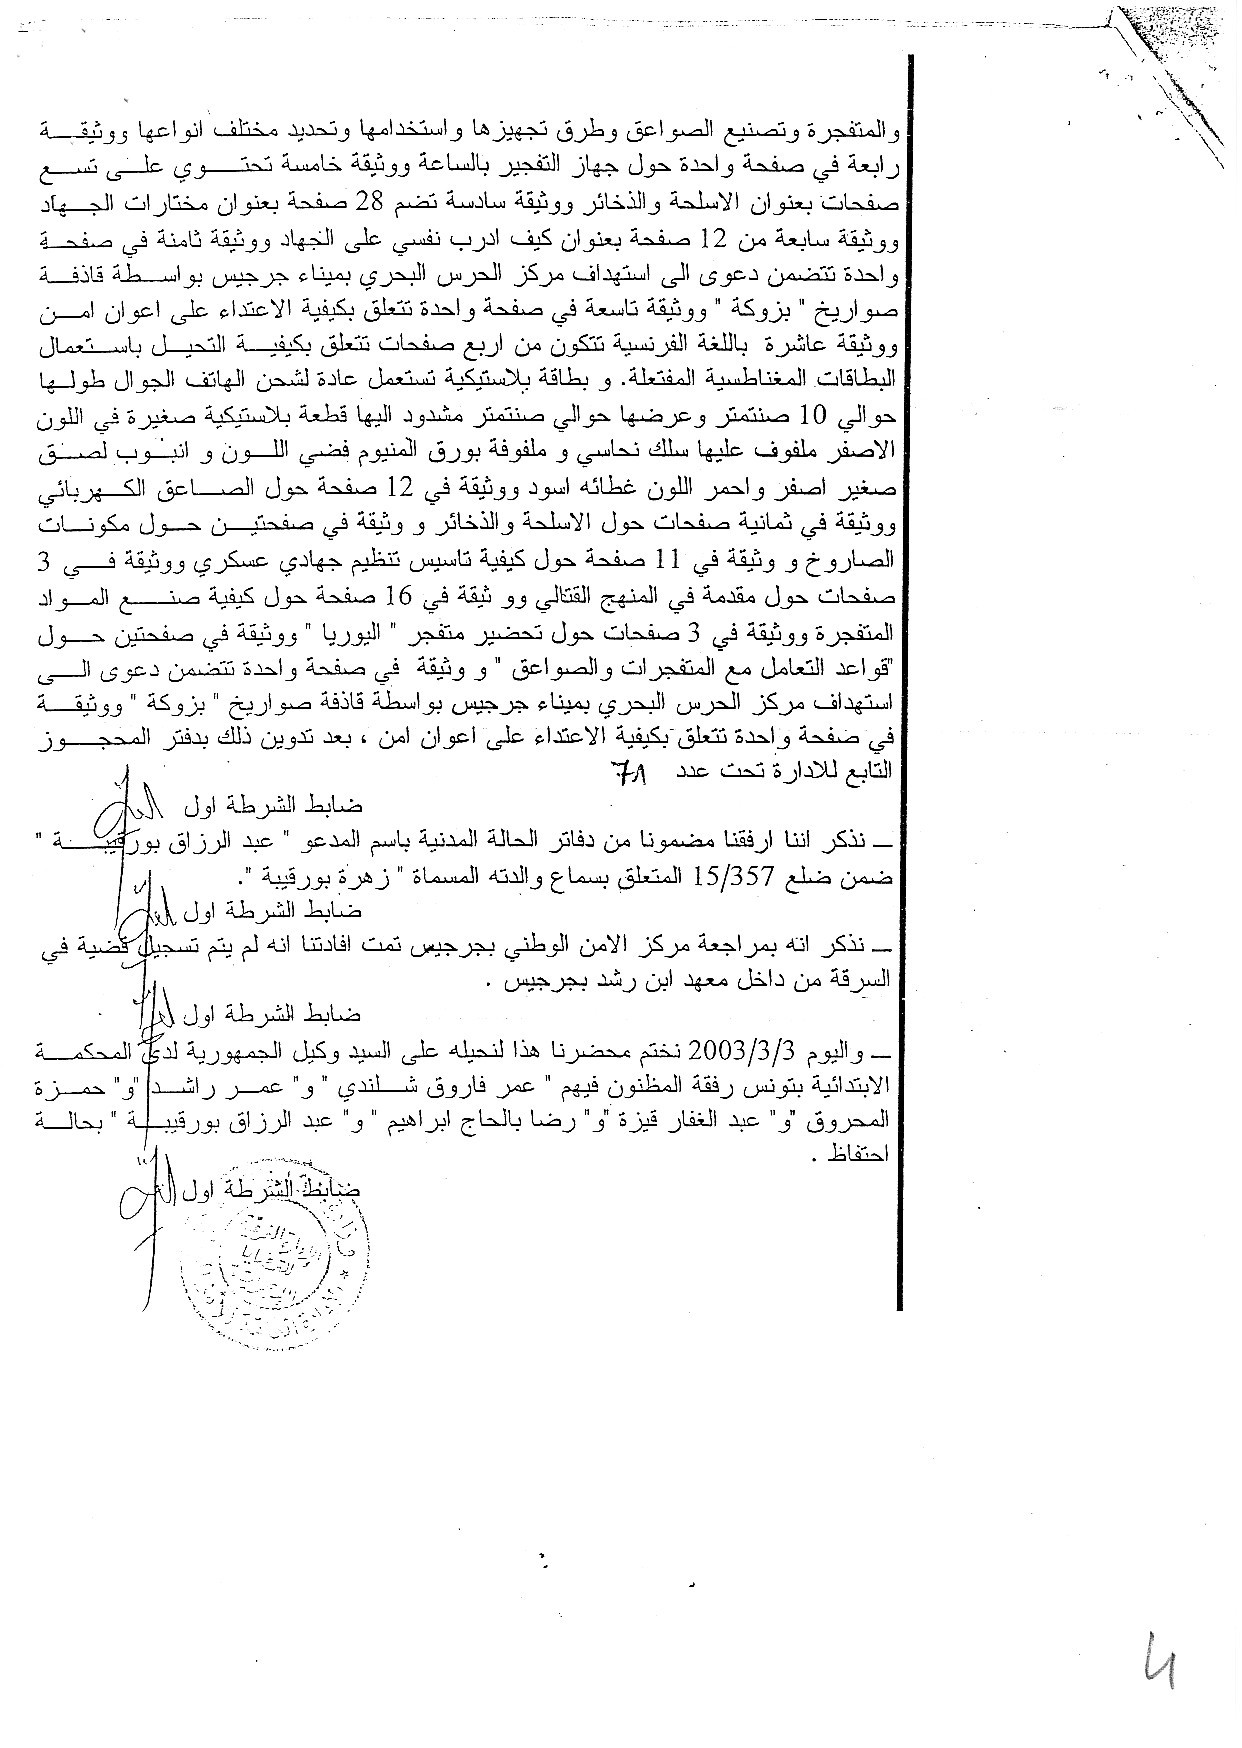 والمتفجرة وتصنيع الصواعق وطرق تجهيزها واستخدامها وتحديد مختلف انواعها ووثيقة
رابعة في صفحة واحدة حول جهاز التفجير بالساعة ووثيقة خامسة تحتوي على تسع
صفحات بعنوان الاسلحة والذخائر ووثيقة سادسة تضم 28 صفحة بعنوان مختارات الجهاد
ووثيقة سابعة من 12 صفحة بعنوان كيف ادرب نفسي على الجهاد ووثيقة ثامنة في صفحة
واحدة تتضمن دعوى الى استهداف مركز الحرس البحري بميناء جرجيس بواسطة قاذفة
صواريخ " بزوكة " ووثيقة تاسعة في صفحة واحدة تتعلق بكيفية الاعتداء على اعوان امن
ووثيقة عاشرة باللغة الفرنسية تتكون من اربع صفحات تتعلق بكيفية التحيل باستعمال
البطاقات المغناطسية المفتعلة. و بطاقة بلاستيكية تستعمل عادة لشحن الهاتف الجوال طولها
حوالي 10 صنتمتر وعرضها حوالي صنتمتر مشدود اليها قطعة بلاستيكية صغيرة في اللون
الاصفر ملفوف عليها سلك نحاسي و ملفوفة بورق المنيوم فضي اللون و انبوب لصق
صغير اصفر واحمر اللون غطائه اسود ووثيقة في 12 صفحة حول الصاعق الكهربائي
ووثيقة في ثمانية صفحات حول الاسلحة والذخائر و وثيقة في صفحتين حول مكونات
الصاروخ و وثيقة في 11 صفحة حول كيفية تاسيس تنظيم جهادي عسكري ووثيقة في 3
صفحات حول مقدمة في المنهج القتالي وو ثيقة في 16 صفحة حول كيفية صنع المواد
المتفجرة ووثيقة في 3 صفحات حول تحضير متفجر " اليوريا " ووثيقة في صفحتين حول
"قواعد التعامل مع المتفجرات والصواعق " و وثيقة في صفحة واحدة تتضمن دعوى الى
استهداف مركز الحرس البحري بميناء جرجيس بواسطة قاذفة صواريخ " بزوكة " ووثيقة
في صفحة واحدة تتعلق بكيفية الاعتداء على اعوان امن ، بعد تدوين ذلك بدفتر المحجوز
التابع للادارة تحت عدد 78
ضابط الشرطة اول
ـ نذكر اننا ارفقنا مضمونا من دفاتر الحالة المدنية باسم المدعو " عبد الرزاق بورقيبة "
ضمن ضلع 15/357 المتعلق بسماع والدته المسماة " زهرة بورقيبة ".
ضابط الشرطة اول
ـ نذكر انه بمراجعة مركز الامن الوطني بجرجيس تمت افادتنا انه لم يتم تسجيل قضية في
السرقة من داخل معهد ابن رشد بجرجيس .
ضابط الشرطة اول
ـ واليوم 2003/3/3 نختم محضرنا هذا لنحيله على السيد وكيل الجمهورية لدى المحكمة
الابتدائية بتونس رفقة المظنون فيهم " عمر فاروق شلاندي " و" عمر راشد "و" حمزة
المحروق "و" عبد الغفار قيزة "و" رضا بالحاج ابراهيم " و" عبد الرزاق بورقيبة " بحالة
احتفاظ .
ضابط الشرطة اول
4